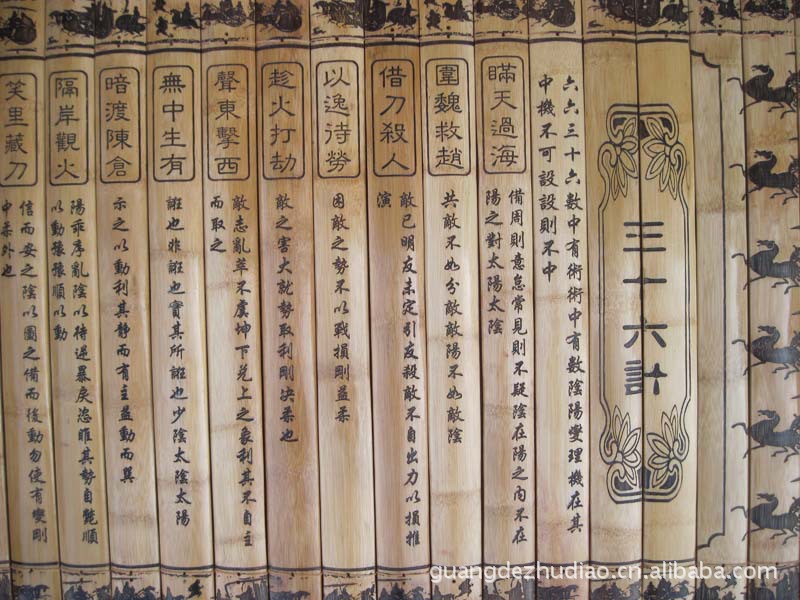 三十六計
六六三十六数中有術術中有數陰陽燮理機在其
中機不可設設則不中
瞞天過海
備周則意怠常見則不疑陰在陽之内不在
陽之對太陽太陰
圍魏救趙
共敵不如分敵敵陽不如敵陰
借刀殺人
敵已明友未定引友殺敵不自出力以損推
演
以逸待勞
困敵之勢不以戰損剛益柔
趁火打劫
敵之害大就勢取利剛決柔也
聲東擊西
敵志亂萃不虞坤下兑上之象利其不自主
而取之
無中生有
誑也非誑也實其所誑也少陰太陰太陽
暗渡陳倉
示之以動利其静而有主益動而巽
隔岸觀火
陽乖序亂陰以待逆暴戾恣睢其勢自斃順
以動豫豫順以動
笑里藏刀
信而安之陰以圖之備而後動勿使有變剛
中柔外也
guangdezhudiao.cn.alibaba.com